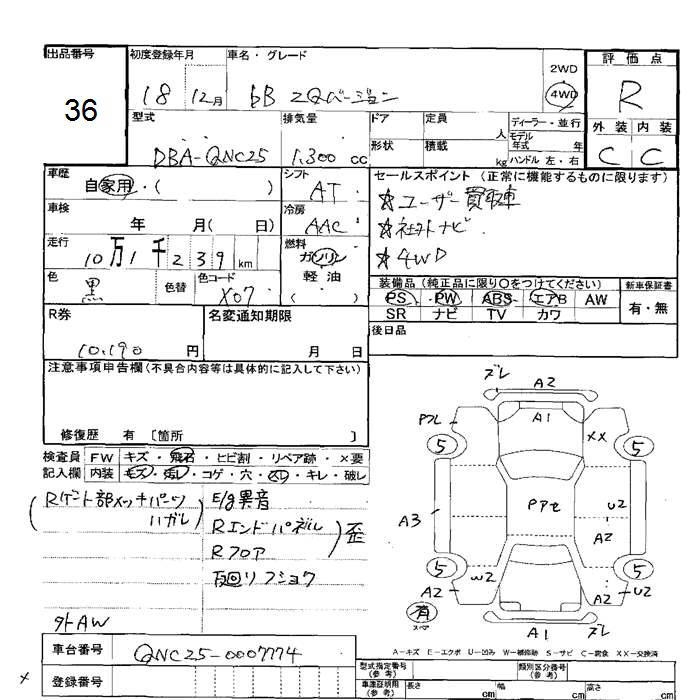 出品番号
36
初度登録年月
18 12月
車名・グレード
bB ZQバージョン
2WD
4WD
評価点
R
外装 内装
C C
型式
DBA-QNC25
排気量
1,300 cc
ドア
定員
人
ディーラー・並行
モデル
年式 年
形状
積載
kg
ハンドル 左・右
車歴
自家用・( )
シフト
AT
セールスポイント(正常に機能するものに限ります)
☆ユーザー買取車
☆社外ナビ
☆4WD
車検
年 月( 日)
冷房
AAC
走行
10万1千239km
燃料
ガソリン
軽油
( )
色
黒
色替
色コード
X07
装備品(純正品に限り○をつけてください)
PS・PW・ABS・エアB AW
SR ナビ TV カワ
新車保証書
有・無
R券
10,190 円
名変通知期限
月 日
後日品
注意事項申告欄(不具合内容等は具体的に記入して下さい)
修復歴 有 [箇所 ]
検査員
記入欄
FW キズ・飛石・ヒビ割・リペア跡・×要
内装 キズ・汚れ・コゲ・穴・スリ・キレ・破レ
Rゲート部メッキパーツ
ハガレ
E/g異音
Rエンドパネル
Rフロア
歪
下廻リフショク
外AW
車台番号
QNC25-0007774
登録番号
ズレ
A2
A1
Pフレ
XX
5
5
A3
Pアセ
U2
A2
5
5
A2
W2
A2
U2
有
スペア
A1
ズレ
A-キズ E-エクボ U-凹み W-補修跡 S-サビ C-腐食 XX-交換済
型式指定番号
(参考)
類別区分番号
(参考)
車庫証明用
(参考)
長さ
cm
幅
cm
高さ
cm